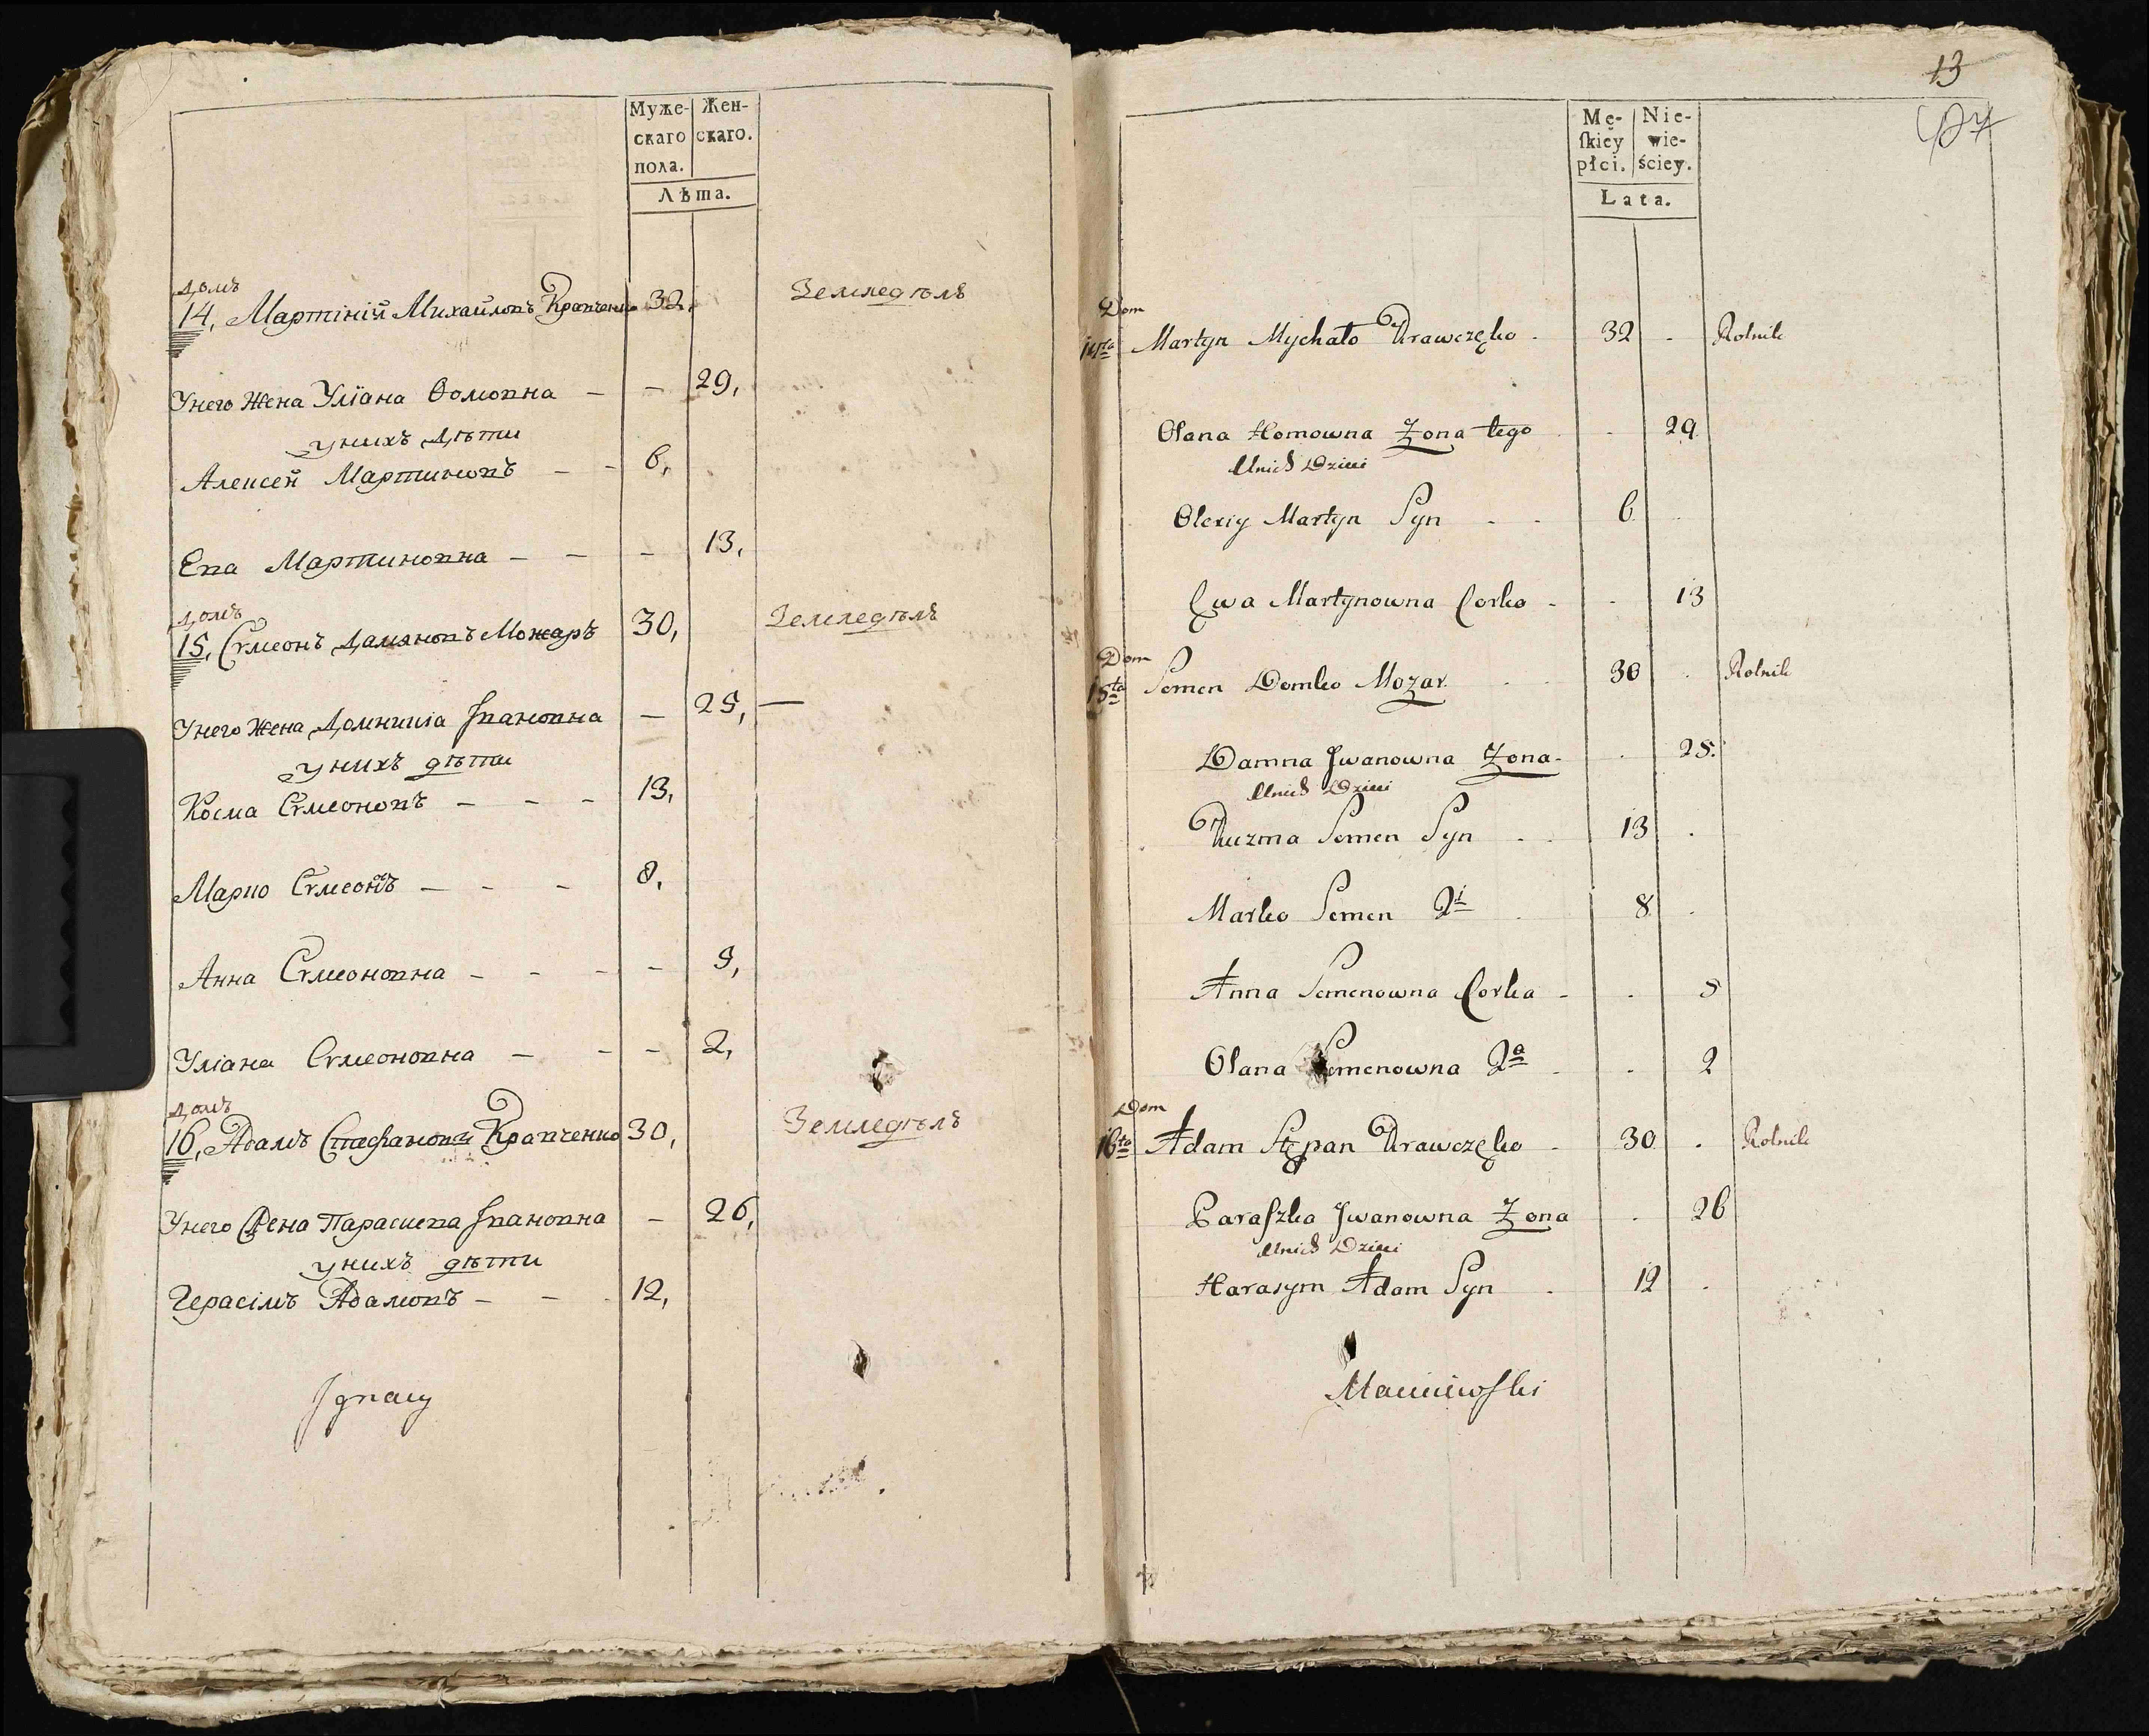 Муже-
скаго
пола.
Жен-
скаго.
Лѣта.
домъ
14, Мартіній Михайловъ Кравченко 32, Земледѣлъ
Унего Жена Уліана Ѳомовна — — 29,
унихъ Дѣти
Алексей Мартиновъ — — 6,
Ева Мартиновна — — — 13,
домъ
15, Сѵмеонъ Даміановъ Можаръ 30, Земледѣлъ
Унего Жена Домникіа Івановна — 25, —
унихъ дѣти
Косма Сѵмеоновъ — — — 13,
Марко Сѵмеоновъ — — — 8,
Анна Сѵмеоновна — — — — 5,
Уліана Сѵмеоновна — — — 2,
домъ
16, Адамъ Стефановъ Кравченко 30, Земледѣлъ
Унего Жена Параскева Івановна — 26,
унихъ дѣти
Герасімъ Адамовъ — — 12,
Ignacy
13
Mę-
ſkiey
płci.
Nie-
wie-
ściey.
Lata.
Dom
14ta Martyn Mychało Krawczęko - 32 - Rolnik
Olana Homowna Żona tego - 29
Unich Dzieci
Olexiy Martyn Syn - - 6
Ewa Martynowna Corka - - 13
Dom
15ta Semen Domko Możar - - 30 - Rolnik
Damna Jwanowna Żona - - 25.
Unich Dzieci
Kuzma Semen Syn - - 13 -
Marko Semen 2i - 8 -
Anna Semenowna Corka - - 5
Olana Semenowna 2a - - 2
Dom
16ta Adam Stępan Krawczęko - 30 - Rolnik
Paraſzka Jwanowna Żona - 26
Unich Dzieci
Harasym Adam Syn - 12 -
Macieiewſki